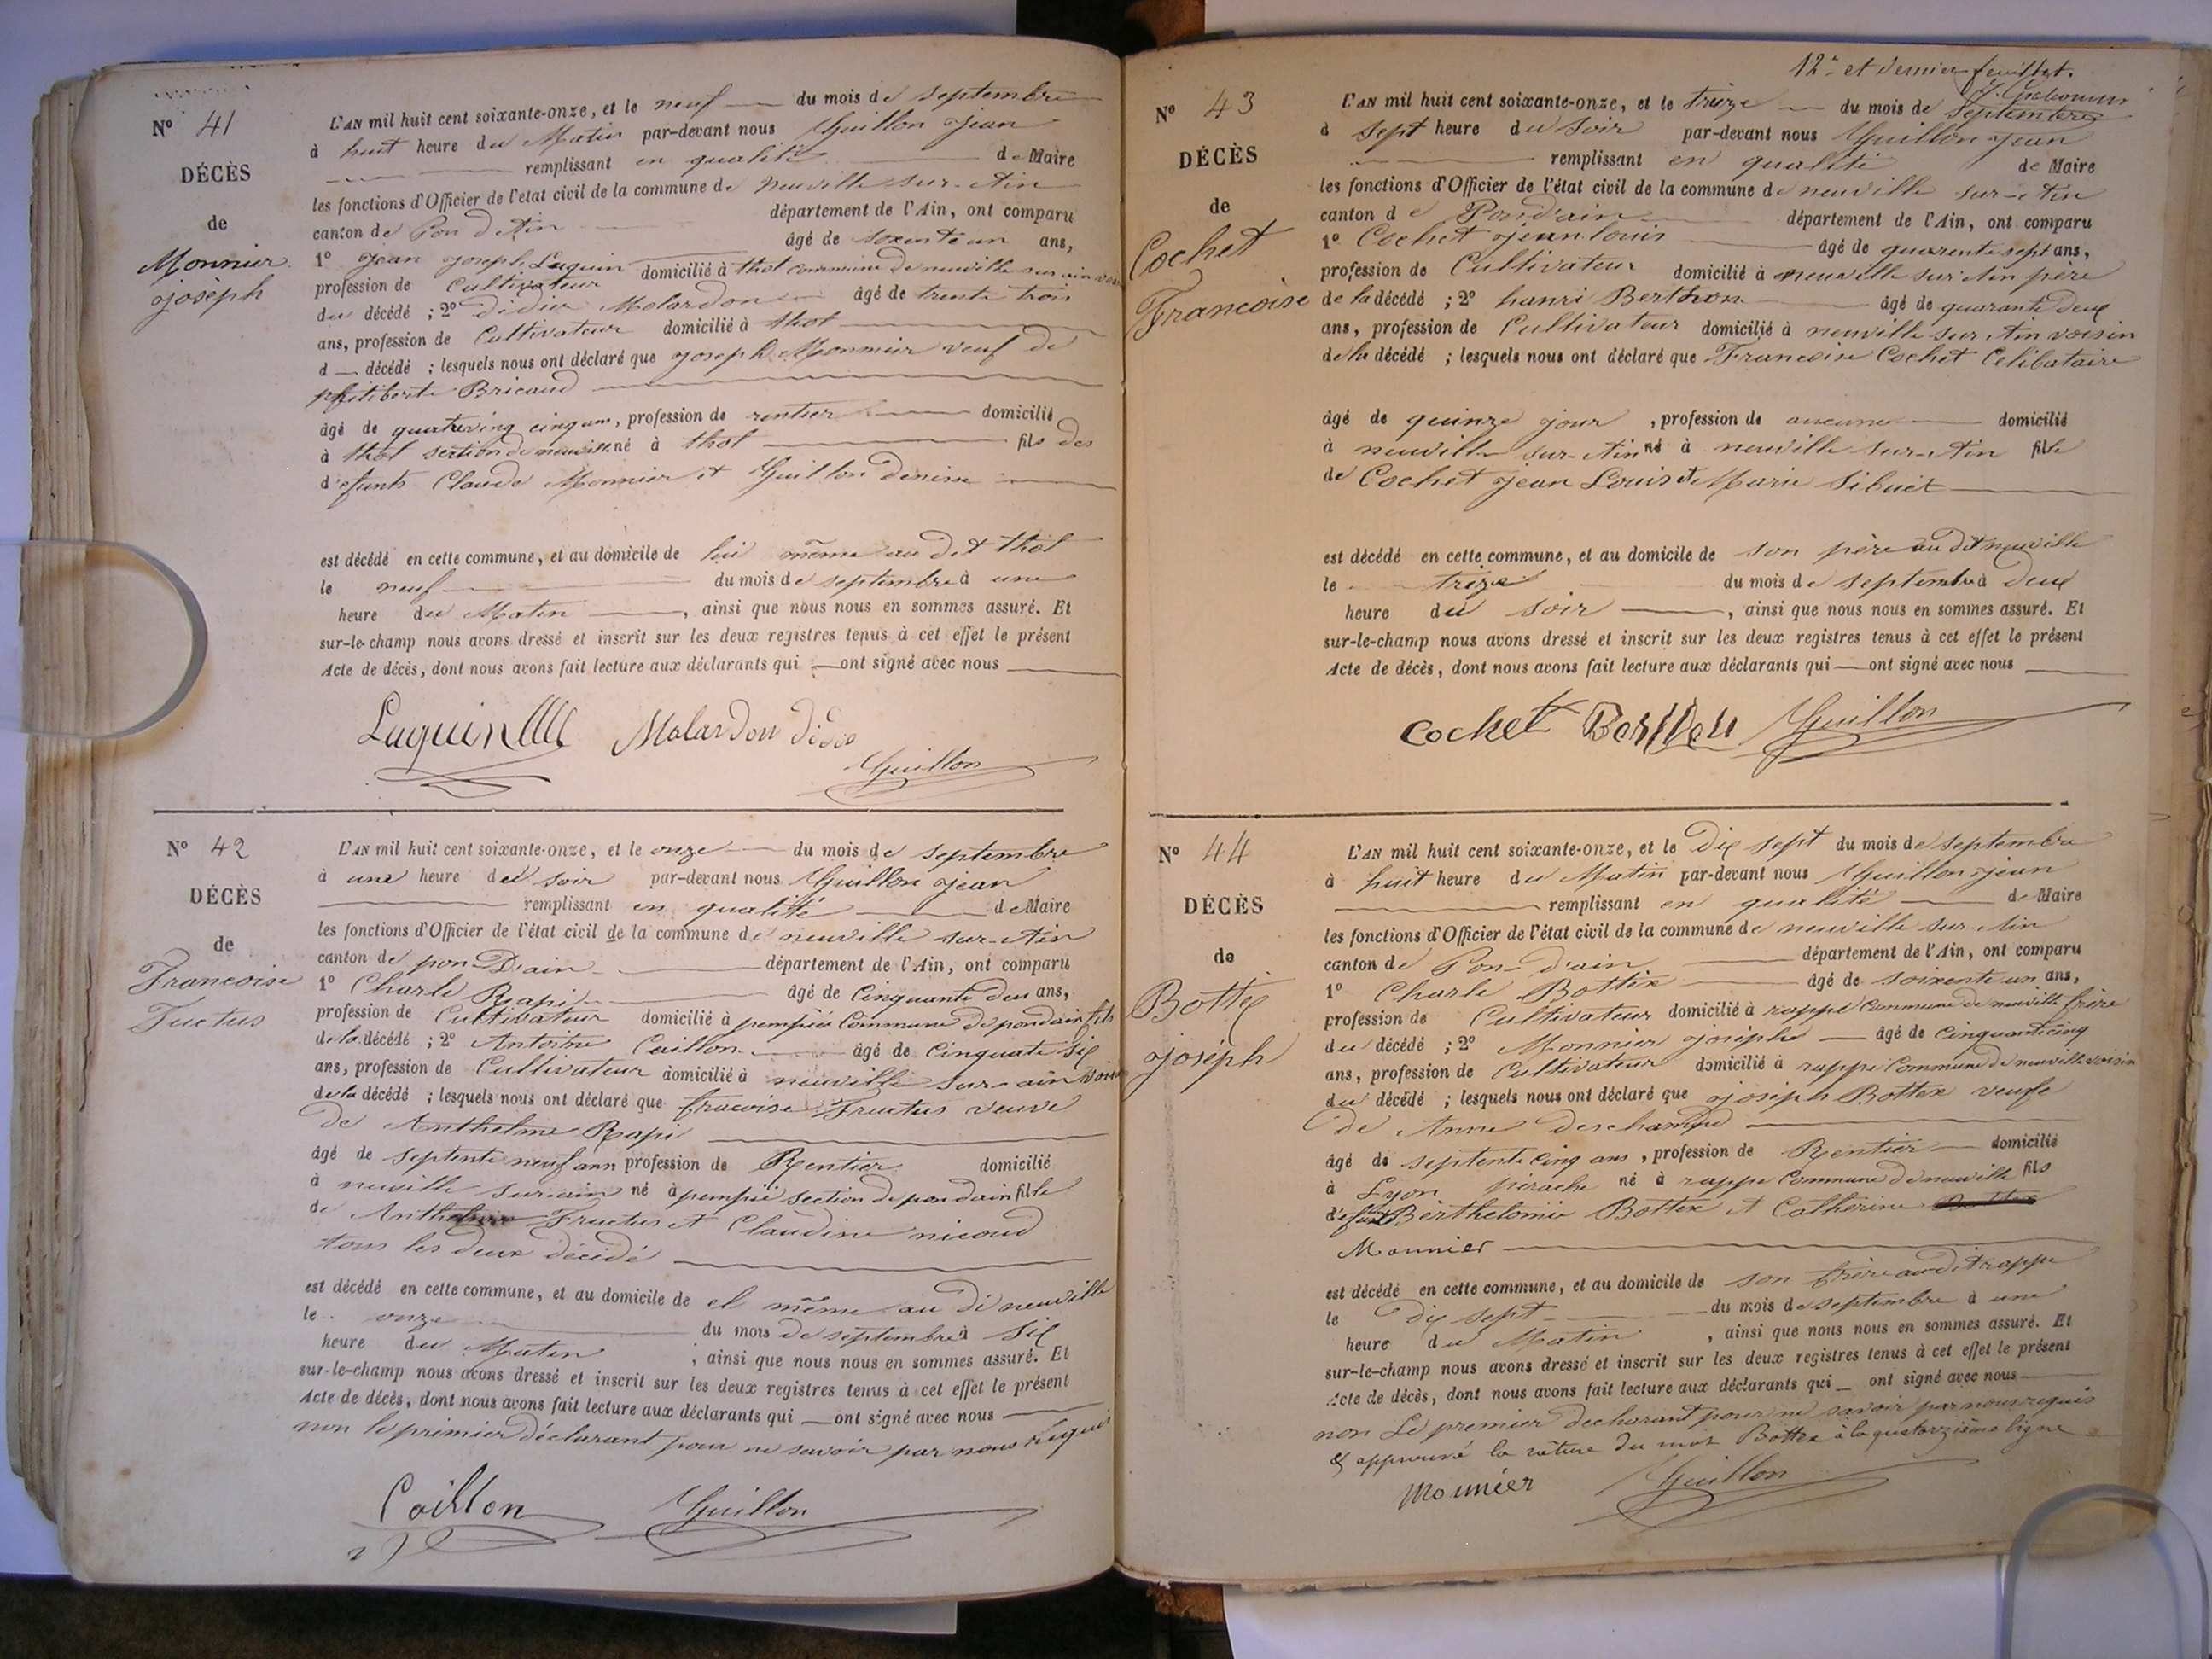 N° 41
DÉCÈS
de
Monnier
joséph
L'AN mil huit cent soixante-onze, et le neuf du mois de septembre
à huit heure du Matin par-devant nous Guillon jean
remplissant en qualité de Maire
les fonctions d'Officier de l'état civil de la commune de neuville sur-Ain
canton de Pon d Ain département de l'Ain, ont comparu
1° jean joseph Luquin âgé de soxente un ans,
profession de Cultivateur domicilié à thol commune de neuville sur ain
du décédé ; 2° Didier Molardon âgé de trente trois
ans, profession de Cultivateur domicilié à thol
d décédé ; lesquels nous ont déclaré que joseph Monnier veuf de
philiberte Bricaud
âgé de quatreving cinq ans, profession de rentier domicilié
à thol section de neuville né à thol fils des
défunts Claude Monnier et Guillon Denise
est décédé en cette commune, et au domicile de lui même au dit thol
le neuf du mois de septembre à une
heure du Matin, ainsi que nous nous en sommes assuré. Et
sur-le-champ nous avons dressé et inscrit sur les deux registres tenus à cet effet le présent
Acte de décès, dont nous avons fait lecture aux déclarants qui ont signé avec nous
Luquin Molardon
Guillon
N° 42
DÉCÈS
de
Francoise
Fuctus
L'AN mil huit cent soixante-onze, et le onze du mois de septembre
à une heure du soir par-devant nous Guillon jean
remplissant en qualité de Maire
les fonctions d'Officier de l'état civil de la commune de neuville sur-Ain
canton de pon D'ain département de l'Ain, ont comparu
1° Charle Rapi âgé de Cinquante deu ans,
profession de Cultivateur domicilié à Commune de pondain fils
de la décédé ; 2° Antoine Caillon âgé de Cinquate six
ans, profession de Cultivateur domicilié à neuville sur-ain
de la décédé ; lesquels nous ont déclaré que fracoise Fructus veuve
de Anthelme Rapi
âgé de septente neuf ann profession de Rentier domicilié
à neuville sur ain né à section de pondain fille
de Anthelme Fructus et Claudine nicoud
tous les deux décédé
est décédé en cette commune, et au domicile de el même au di neuville
le onze du mois de septembre à six
heure du Matin, ainsi que nous nous en sommes assuré. Et
sur-le-champ nous avons dressé et inscrit sur les deux registres tenus à cet effet le présent
Acte de décès, dont nous avons fait lecture aux déclarants qui ont signé avec nous
non le premier déclarant pour ne savoir par nous requis
Caillon Guillon
12e et dernier feuillet.
N° 43
DÉCÈS
de
Cochet
Francoise
L'AN mil huit cent soixante-onze, et le treize du mois de septembre
à sept heure du soir par-devant nous Guillon jean
remplissant en qualité de Maire
les fonctions d'Officier de l'état civil de la commune de neuville sur-Ain
canton de Pon d'ain département de l'Ain, ont comparu
1° Cochet jean louis âgé de quarente sept ans,
profession de Cultivateur domicilié à neuville sur Ain père
de la décédé ; 2° hanri Berthon âgé de quarante deux
ans, profession de Cultivateur domicilié à neuville sur Ain voisin
de la décédé ; lesquels nous ont déclaré que Francoise Cochet Celibataire
âgé de quinze jour, profession de aucune domicilié
à neuville sur-Ain né à neuville sur-Ain fille
de Cochet jean Louis et Marie Sibuet
est décédé en cette commune, et au domicile de son père au dit neuville
le treize du mois de septembre à deux
heure du soir, ainsi que nous nous en sommes assuré. Et
sur-le-champ nous avons dressé et inscrit sur les deux registres tenus à cet effet le présent
Acte de décès, dont nous avons fait lecture aux déclarants qui ont signé avec nous
Cochet Guillon
N° 44
DÉCÈS
de
Bottex
joséph
L'AN mil huit cent soixante-onze, et le dix sept du mois de septembre
à huit heure du Matin par-devant nous Guillon jean
remplissant en qualité de Maire
les fonctions d'Officier de l'état civil de la commune de neuville sur Ain
canton de Pon-d'ain département de l'Ain, ont comparu
1° Charle Bottex âgé de soixente un ans,
profession de Cultivateur domicilié à rappe Commune de neuville frère
du décédé ; 2° Monnier joséphe âgé de Cinquante cinq
ans, profession de Cultivateur domicilié à rappe Commune de neuville voisin
du décédé ; lesquels nous ont déclaré que joséph Bottex veufe
de Anne deschamps
âgé de septente cinq ans, profession de Rentier domicilié
à Lyon pérache né à rappe Commune de neuville fils
défunt Berthelomie Bottex et Catherine
Monnier
est décédé en cette commune, et au domicile de son frère au dit rappe
le dix sept du mois de septembre à une
heure du Matin, ainsi que nous nous en sommes assuré. Et
sur-le-champ nous avons dressé et inscrit sur les deux registres tenus à cet effet le présent
Acte de décès, dont nous avons fait lecture aux déclarants qui ont signé avec nous
non Le premier declarant pour ne savoir par nous requis
& approuvé la rature du mot Bottex à la quatorzième ligne
Monnier Guillon